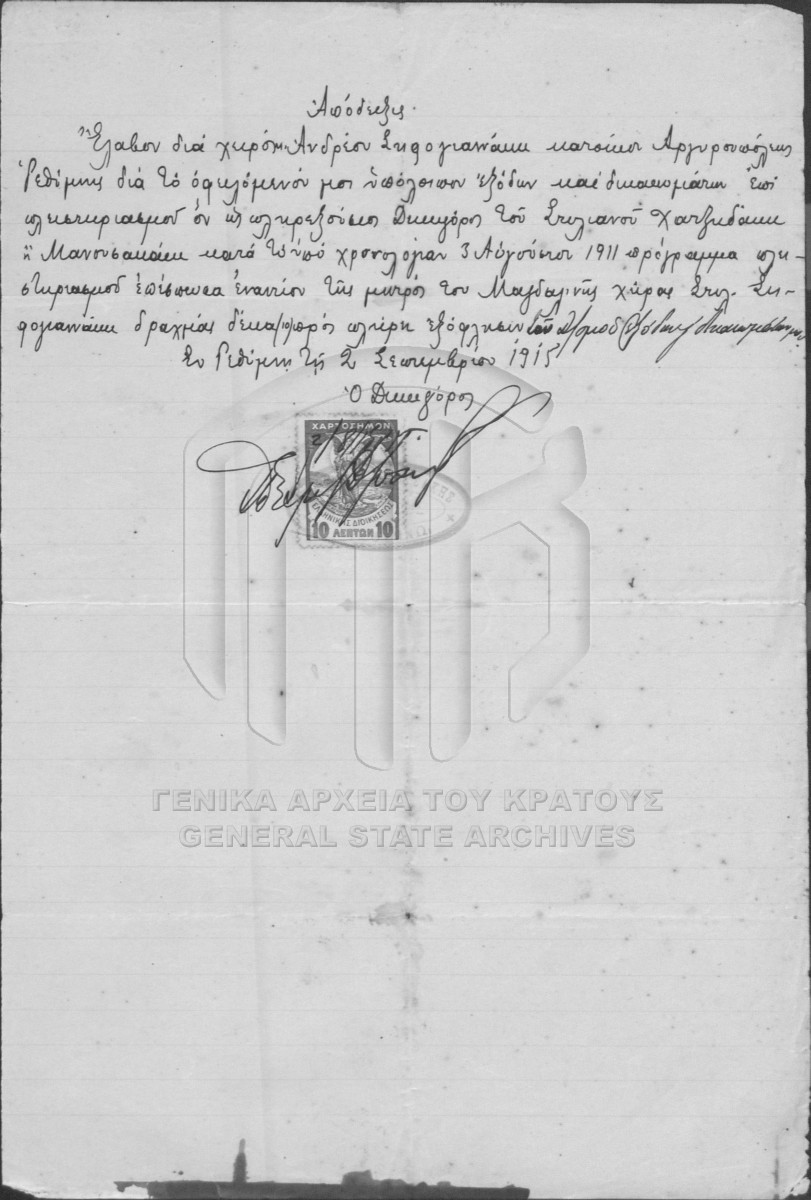 Ἀπόδειξις.
Ἔλαβον διά χειρός Ἀνδρέου Σηφογιαννάκη κατοίκου Ἀργυρουπόλεως
Ῥεθύμνης διά τό ὀφειλόμενόν μοι ὑπόλοιπον ἐξόδων καί δικαιωμάτων ἐπί
πλειστηριασμοῦ ὅν ὡς πληρεξούσιος Δικηγόρος τοῦ Στυλιανοῦ Χατζηδάκη
ἤ Μανουσακάκη κατά τό ὑπό χρονολογίαν 3 Αὐγούστου 1911 πρόγραμμα πλει-
στηριασμοῦ ἐπέσπευσα ἐναντίον τῆς μητρός του Μαγδαληνῆς χήρας Στυλ. Ση-
φογιαννάκη δραχμάς δέκα /10/ πρός πλήρη ἐξόφλησιν τῶν
Ἐν Ῥεθύμνῃ τῇ 2 Σεπτεμβρίου 1915
Ὁ Δικηγόρος
ΧΑΡΤΟΣΗΜΟΝ
ΕΛΛΗΝΙΚΗΣ ΔΙΟΙΚΗΣΕΩΣ
10 ΛΕΠΤΩΝ 10
ΓΕΝΙΚΑ ΑΡΧΕΙΑ ΤΟΥ ΚΡΑΤΟΥΣ
GENERAL STATE ARCHIVES